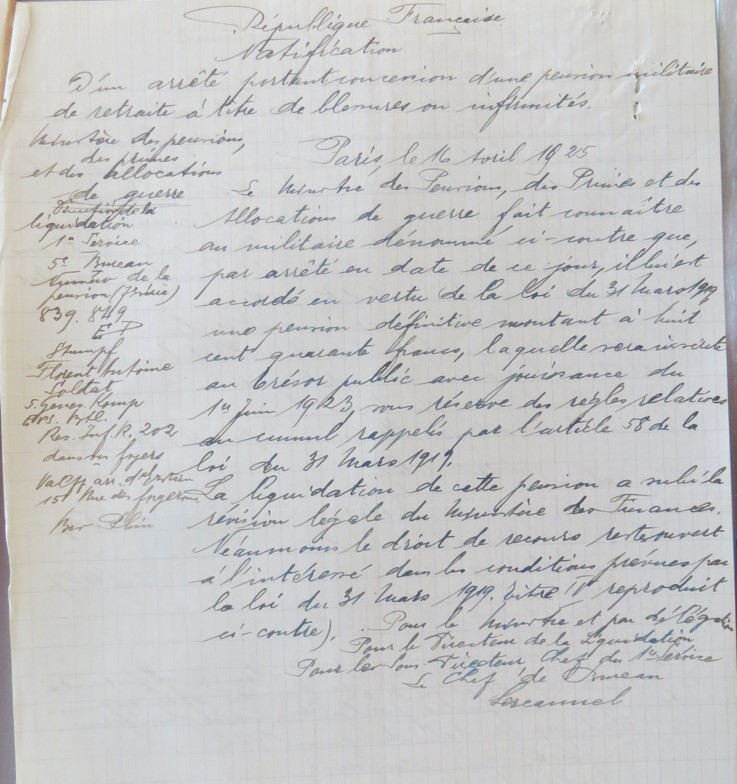 République Française
Notification
D'un arrêté portant concession d'une pension militaire
de retraite à titre de blessures ou infirmités.
Ministère des pensions,
des primes
et des allocations
de guerre
Direction de la
liquidation
1er Service
5e Bureau
Numéro de la
pension (7 Série)
839.849
E D
Stumpf
Florent Antoine
Soldat
5. Genes. Komp
Ers. Btl.
Res. Inf. R. 202
dans ses foyers
Valff arr. d'Erstein
151 Rue des forgerons
Bas Rhin
Paris, le 16 Avril 1925
Le Ministre des Pensions, des Primes et des
Allocations de guerre fait connaître
au militaire dénommé ci-contre que,
par arrêté en date de ce jour, il lui est
accordé en vertu de la loi du 31 Mars 1919
une pension définitive montant à huit
cent quarante francs, laquelle sera inscrite
au trésor public avec jouissance du
1er Juin 1923, sous réserve des règles relatives
au cumul rappelés par l'article 58 de la
loi du 31 Mars 1919.
La liquidation de cette pension a subi la
révision légale du Ministère des Finances.
Néanmoins le droit de recours reste ouvert
à l'intéressé dans les conditions prévues par
la loi du 31 Mars 1919. titre IV reproduit
ci-contre).
Pour le Ministre et par délégation
Pour le Directeur de la Liquidation
Pour le Sous-Directeur Chef du 1er Service
Le Chef de Bureau